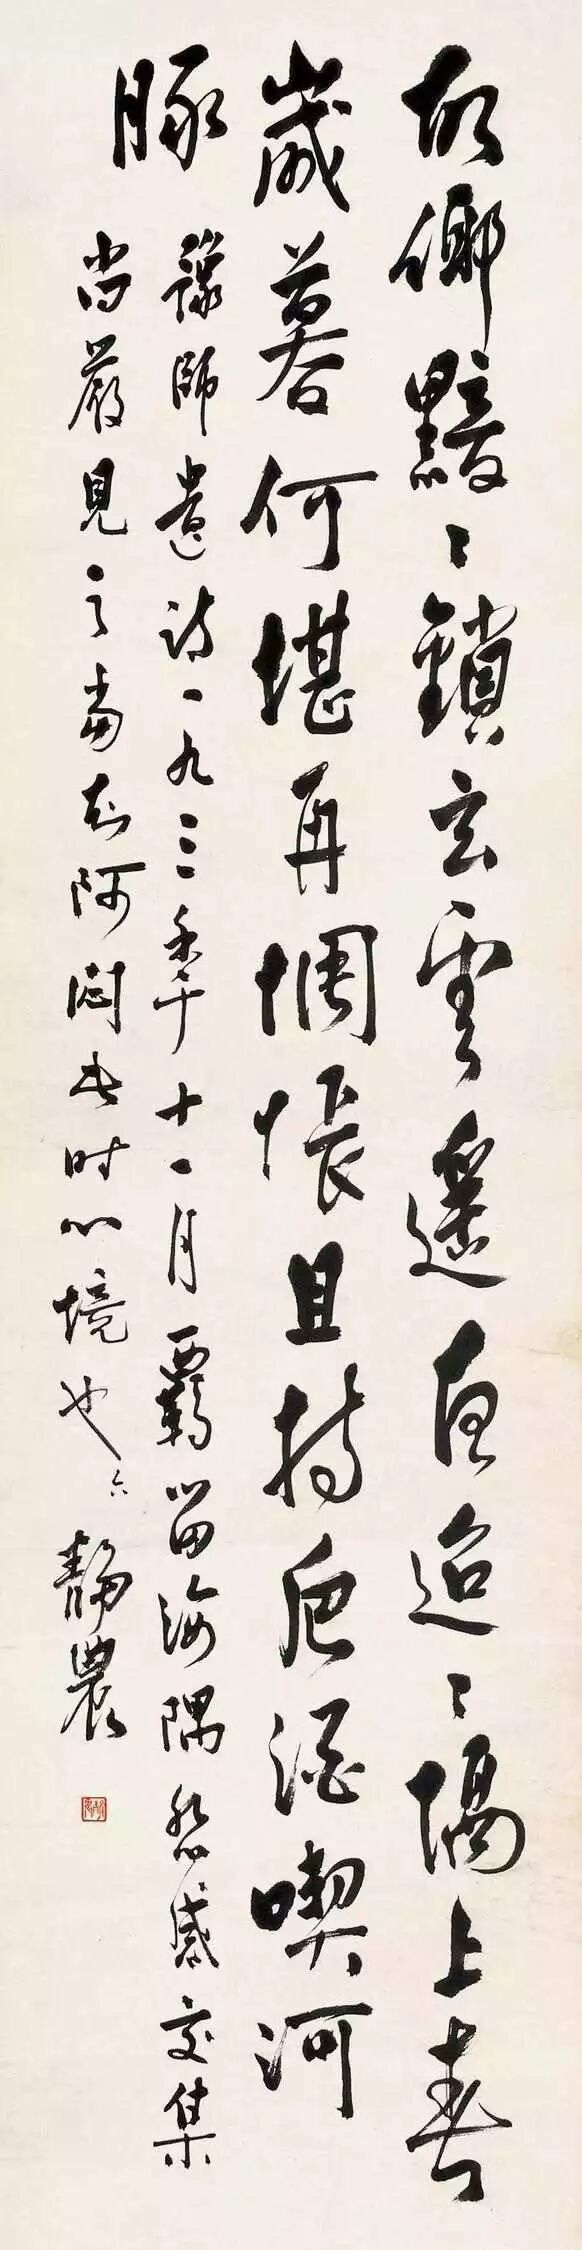 故鄉黯〻鎖玄雲遙夜迢〻隔上春
歲暮何堪再惆悵且持卮酒喫河
豚 豫師遺詩一九三二年十一月羈留海隅感交集
尚嚴見之當知阿此時心境也 靜農